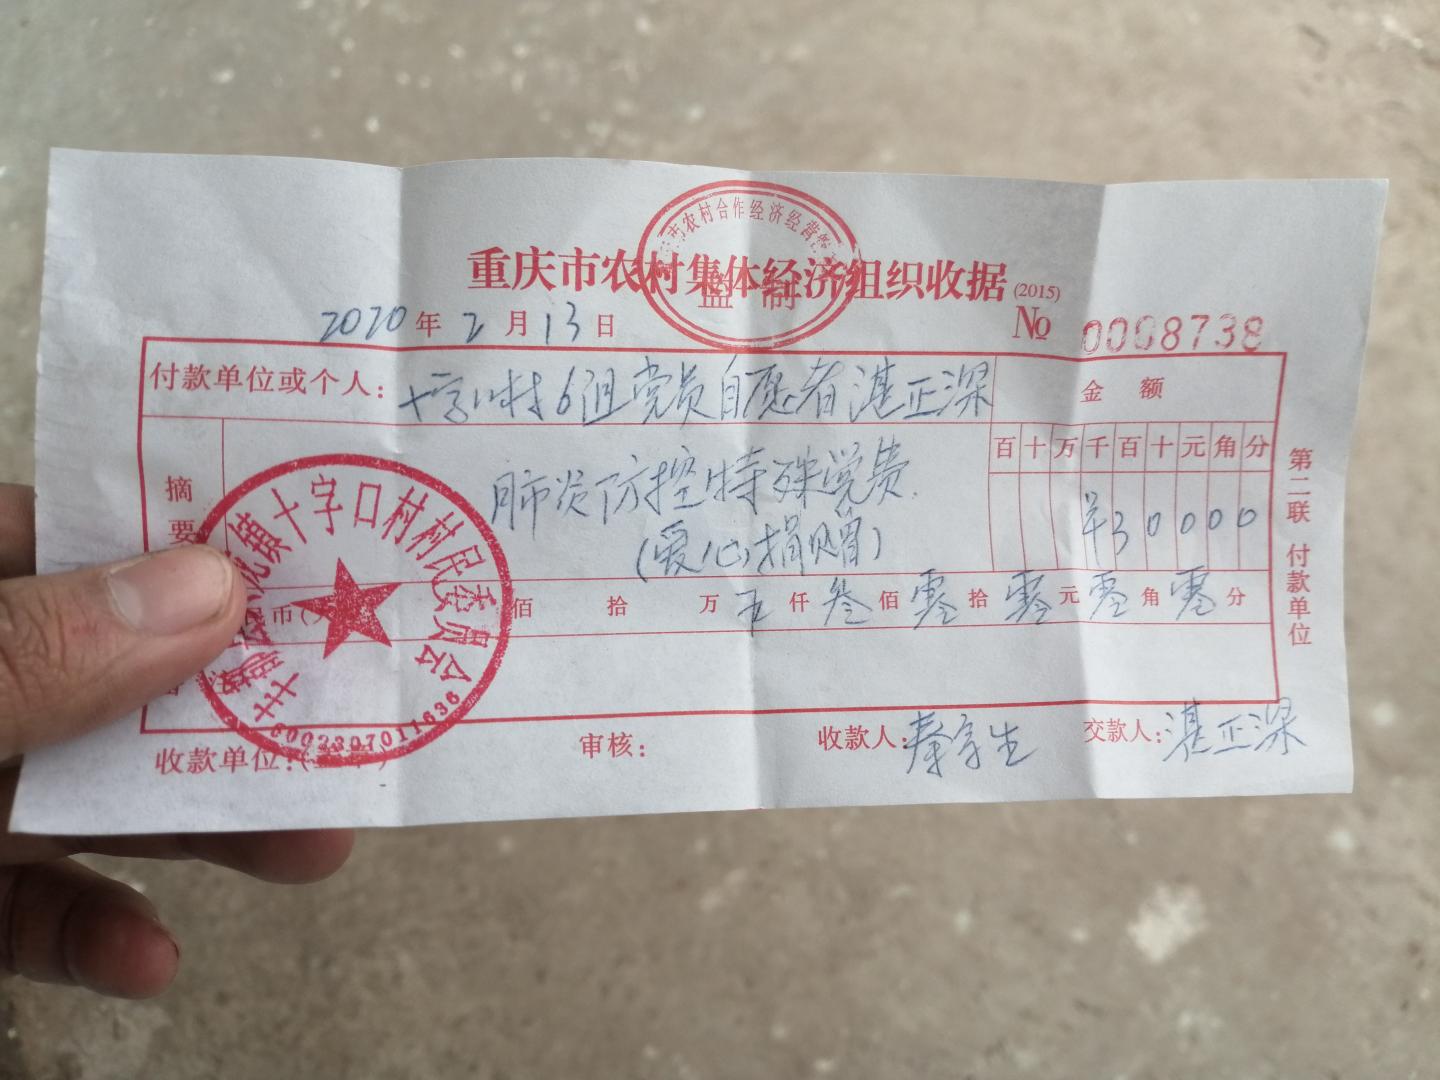 重庆市农村集体经济组织收据(2015)
市农村合作经济经营
监制
2020年2月13日
№ 0008738
付款单位或个人：十字口村6组党员自愿者湛正深
金额
摘要
肺炎防控特殊党费
(爱心捐赠)
百十万千百十元角分
¥30000
币 佰 拾 万 仟叁佰零拾零元零角零分
镇十字口村村民委员会
5002307011636
收款单位：
审核：
收款人：秦字生
交款人：湛正深
第二联 付款单位